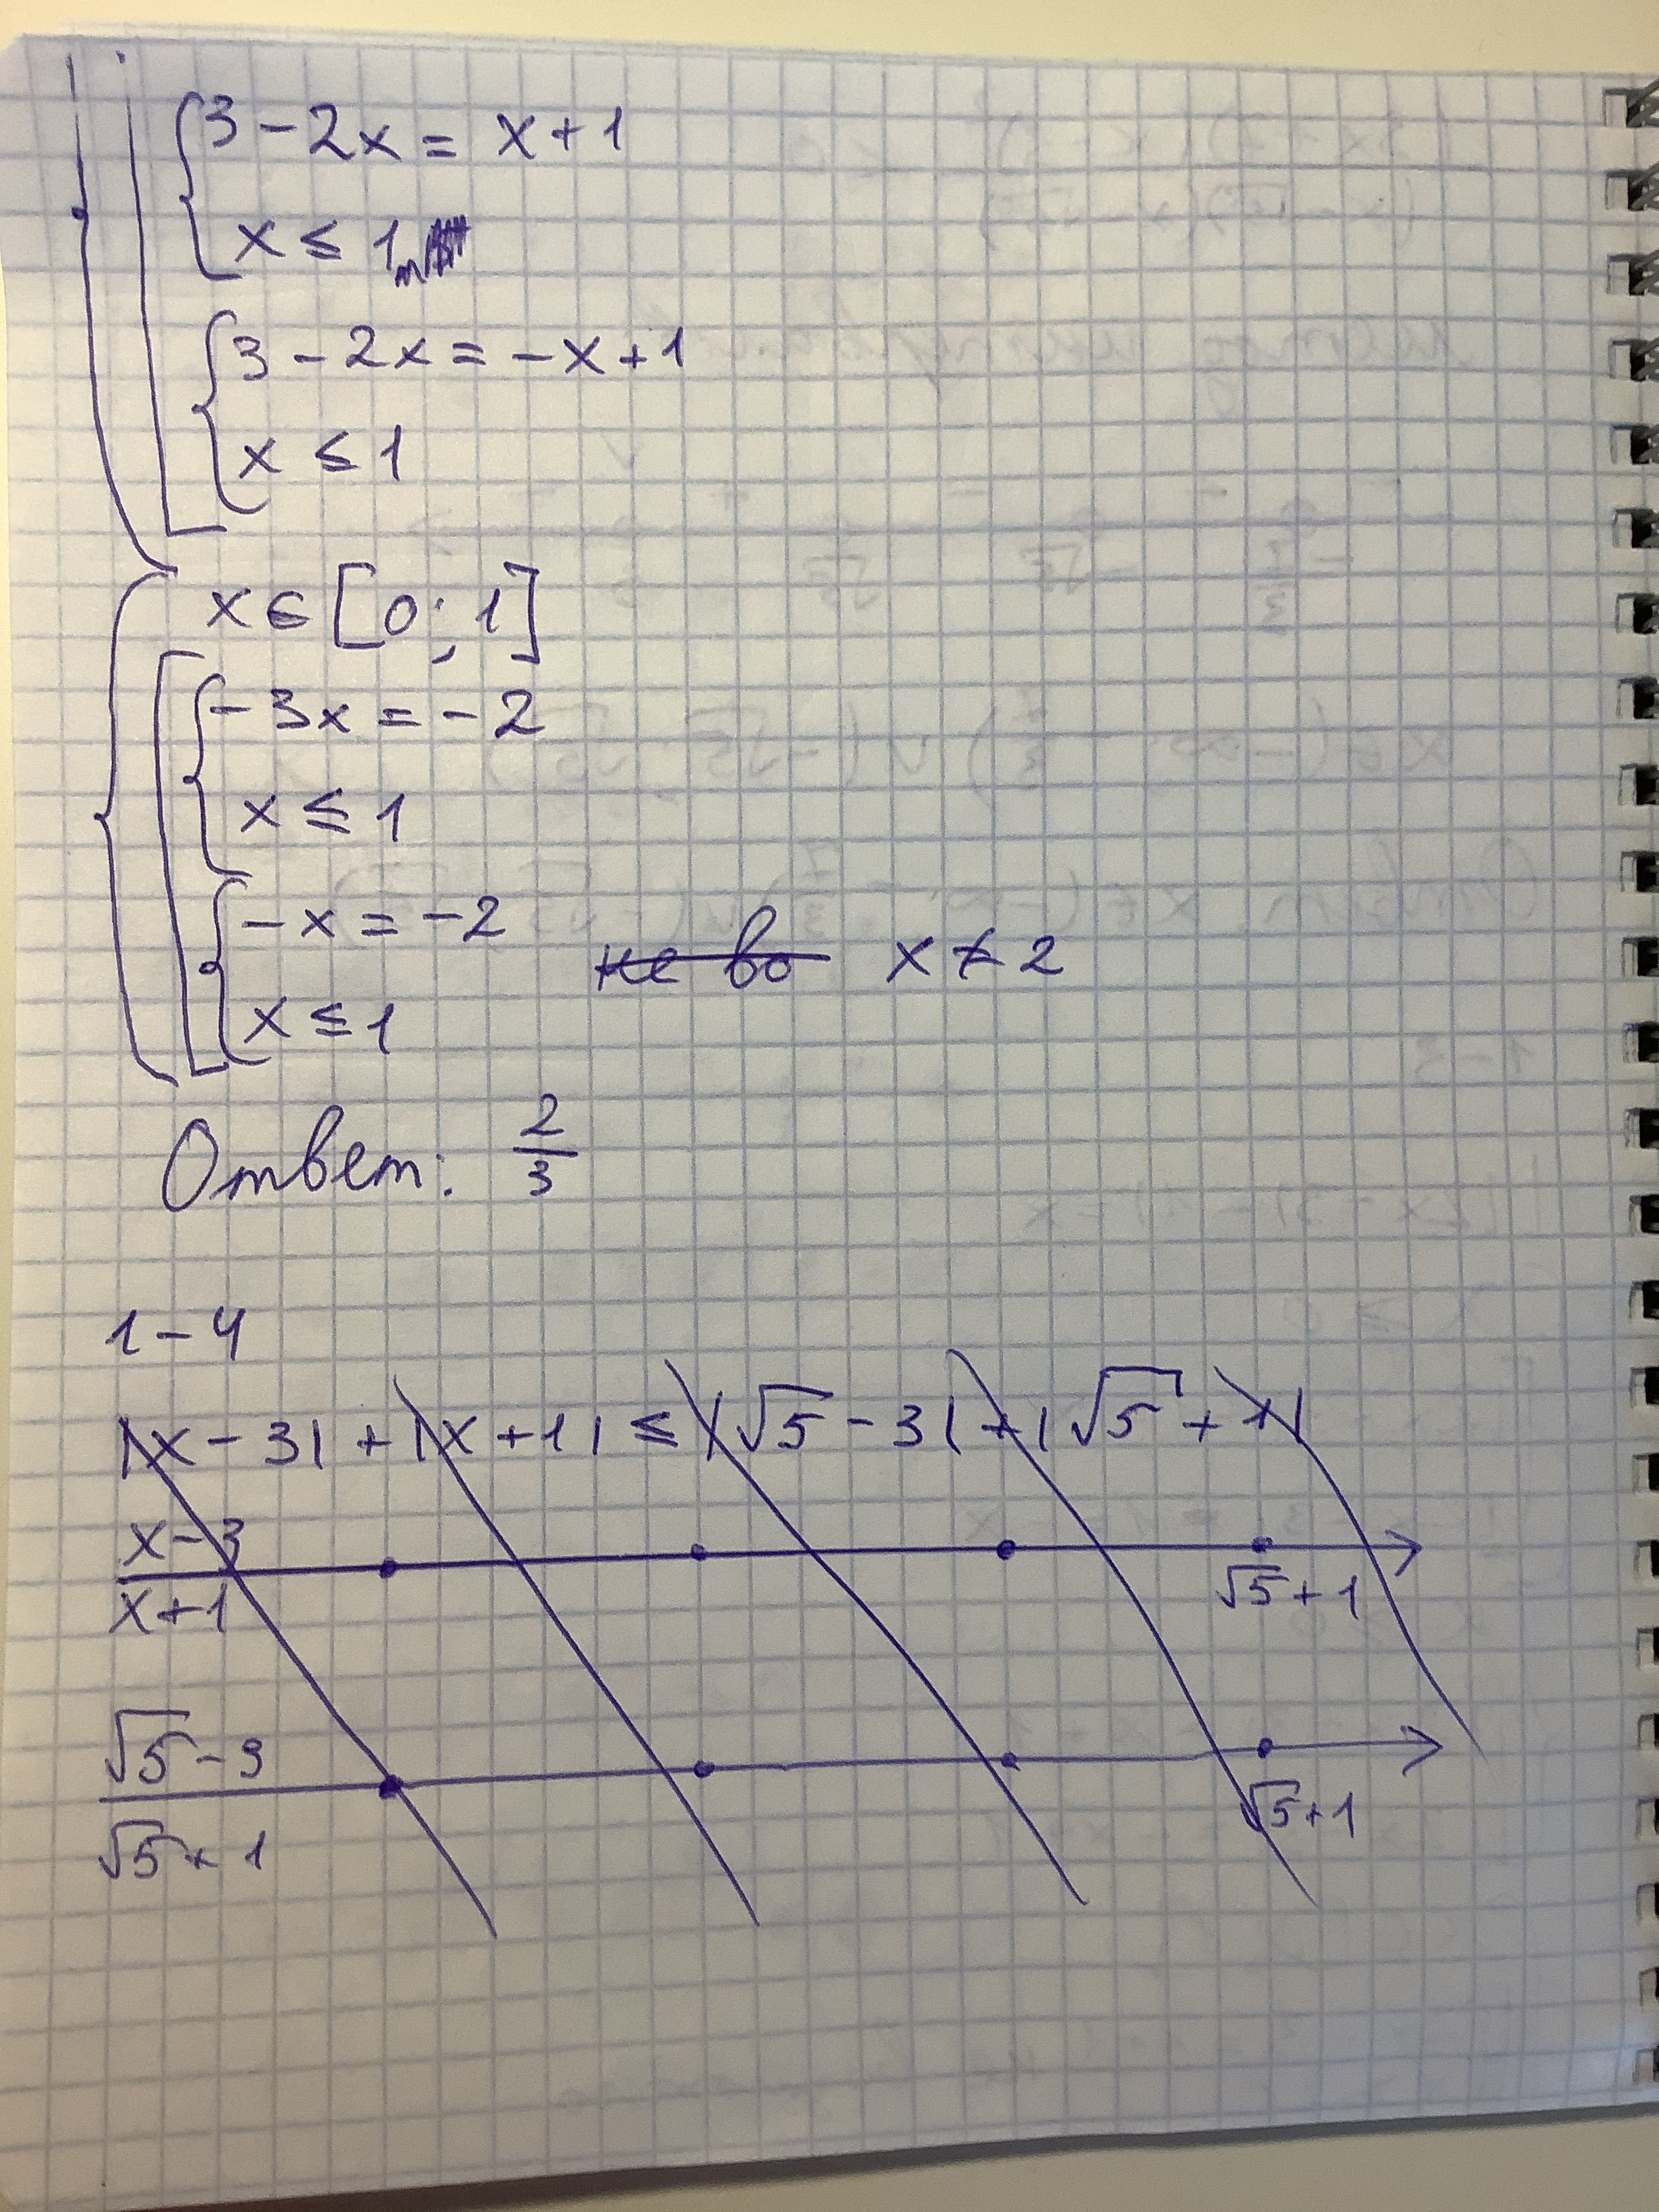 3 - 2x = x + 1
x ≤ 1
3 - 2x = -x + 1
x ≤ 1
x ∈ [0; 1]
-3x = -2
x ≤ 1
-x = -2
не во x ≠ 2
x ≤ 1
Ответ: 2/3
1 - 4
|x - 3| + |x + 1| ≤ |√5 - 3| + |√5 + 1|
x - 3
x + 1
√5 + 1
√5 - 3
√5 + 1
√5 + 1